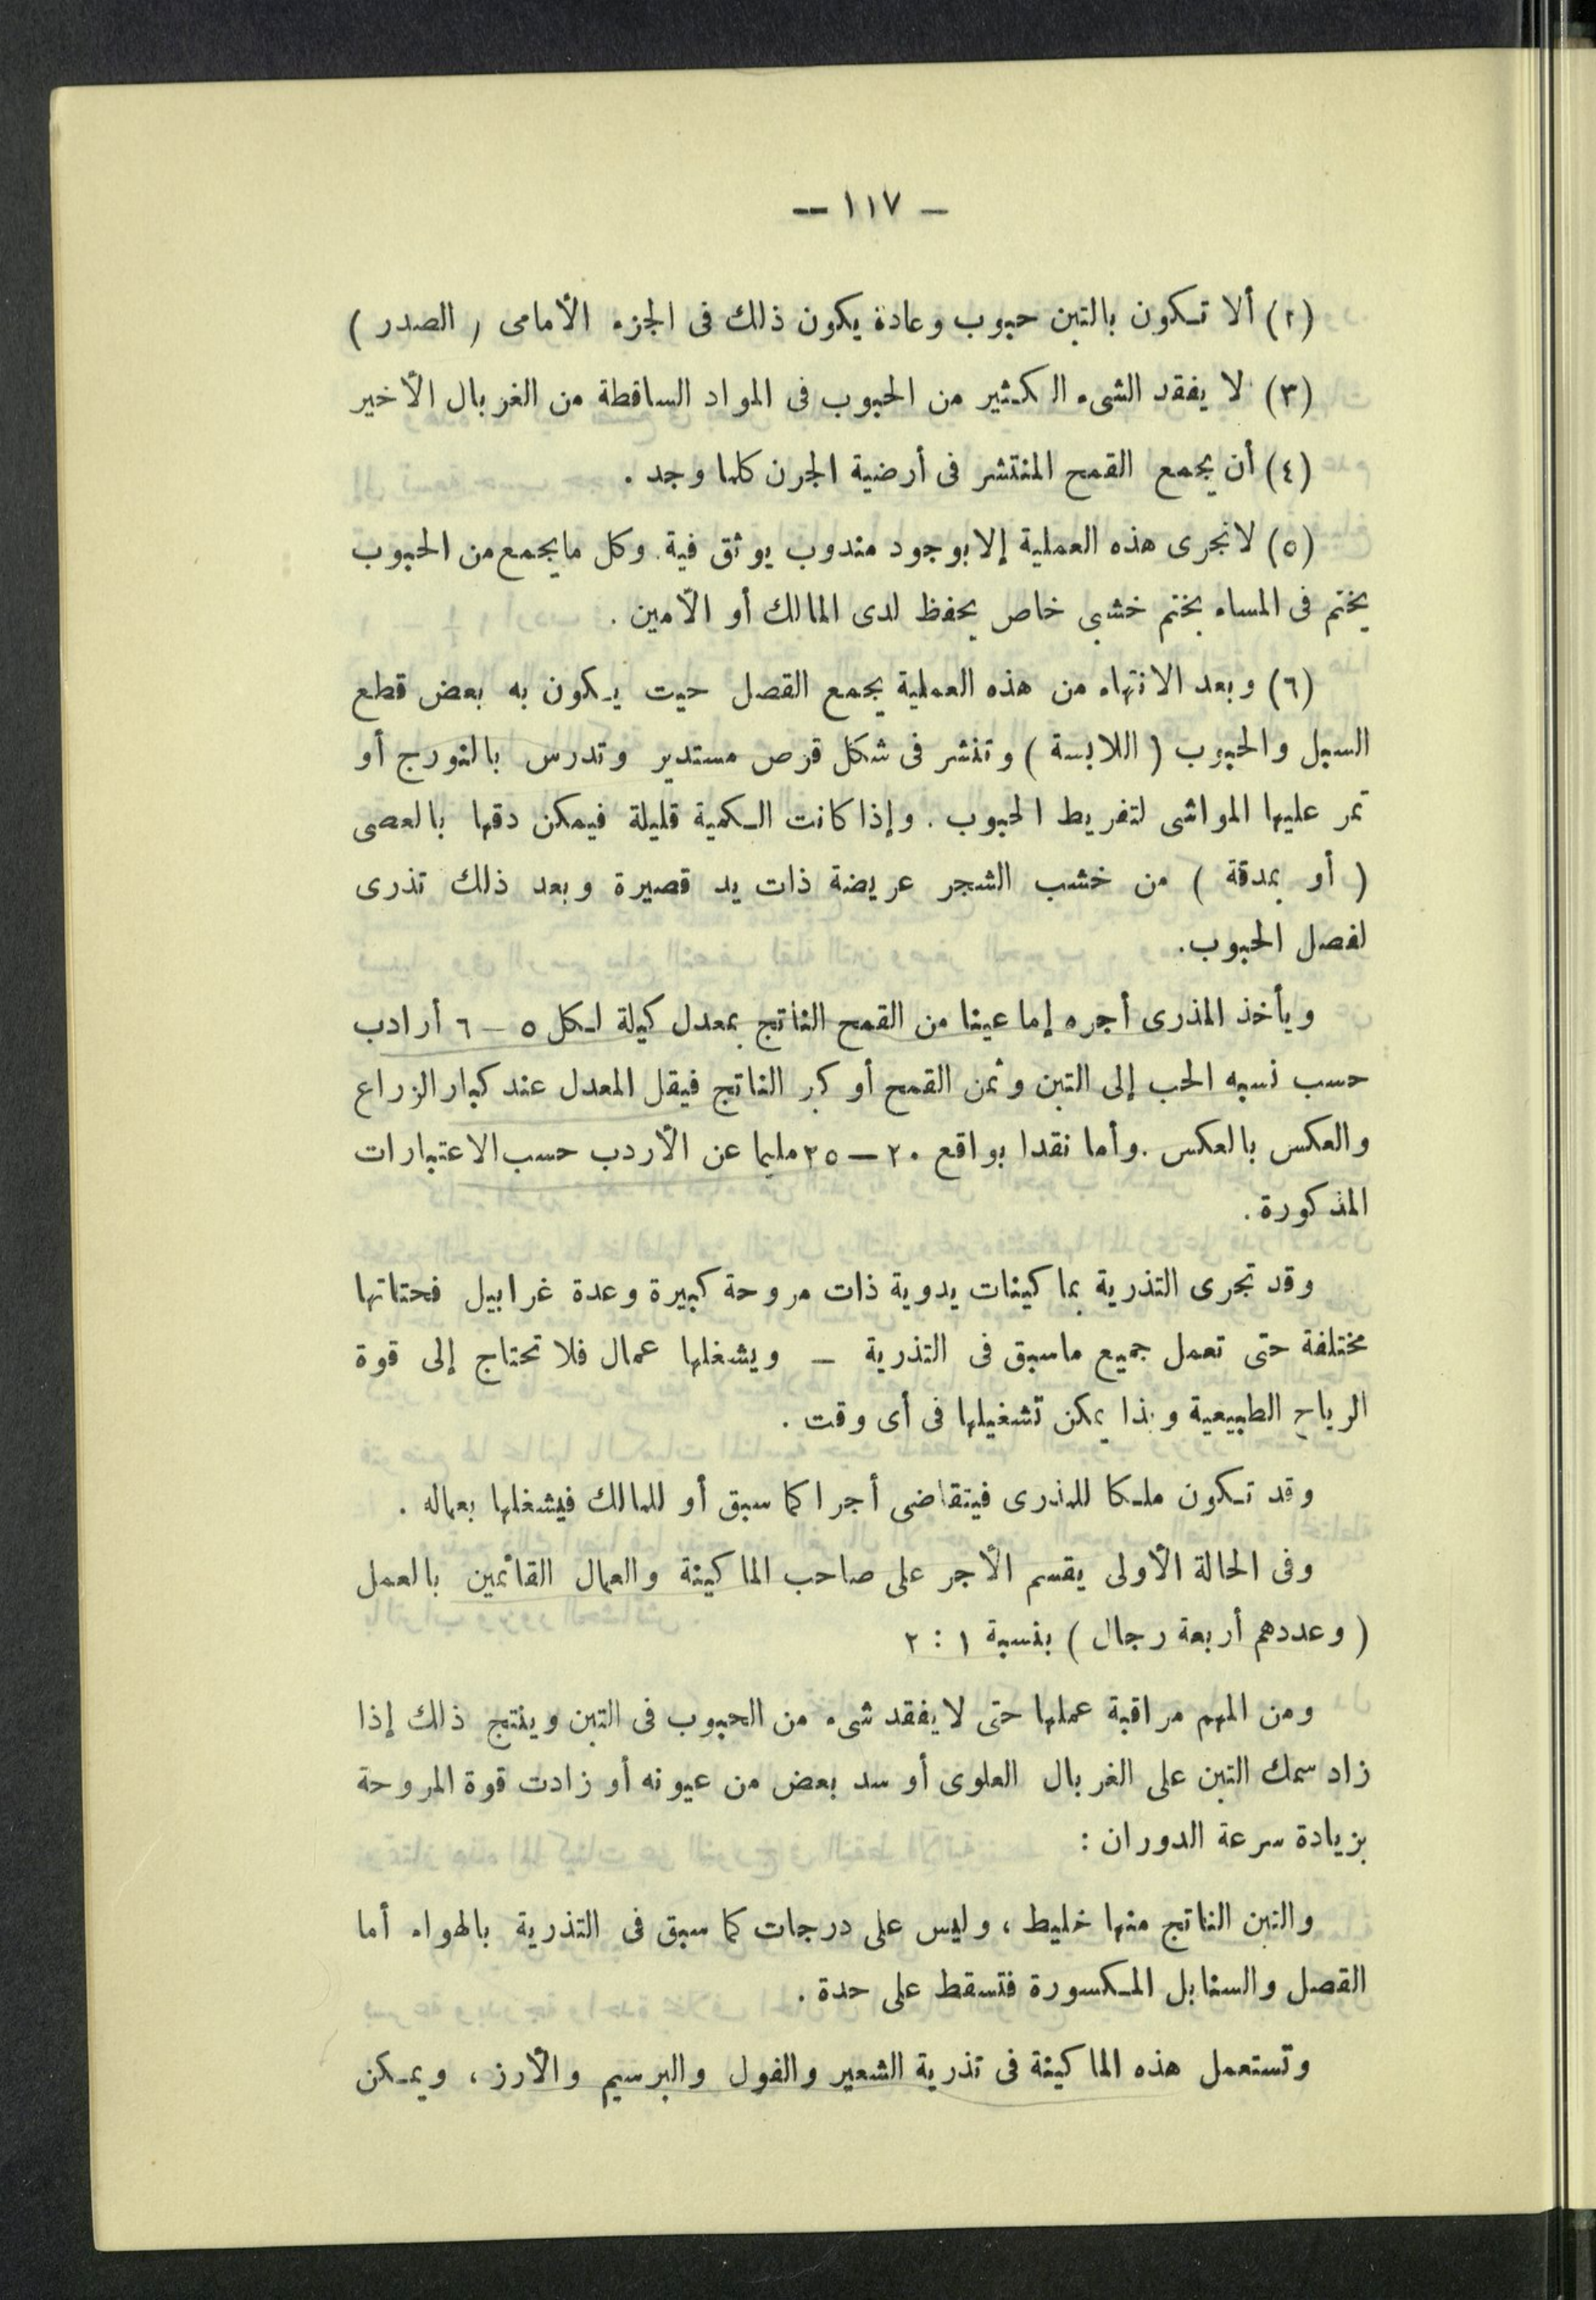 — ١١٧ —
(٢) ألا تكون بالتبن حبوب وعادة يكون ذلك فى الجزء الأمامى ( الصدر )
(٣) لا يفقد الشىء الكثير من الحبوب فى المواد الساقطة من الغربال الأخير
(٤) أن يجمع القمح المنتشر فى أرضية الجرن كلما وجد .
(٥) لا تجرى هذه العملية إلا بوجود مندوب يوثق فية. وكل ما يجمع من الحبوب
يختم فى المساء بختم خشبى خاص يحفظ لدى المالك أو الأمين .
(٦) وبعد الانتهاء من هذه العملية يجمع القصل حيت يكون به بعض قطع
السبل والحبوب ( اللابسة ) وتنشر فى شكل قرص مستدير وتدرس بالنورج أو
تمر عليها المواشى لتفريط الحبوب . وإذا كانت الكمية قليلة فيمكن دقها بالعصى
( أو بمدقة ) من خشب الشجر عريضة ذات يد قصيرة وبعد ذلك تذرى
لفصل الحبوب.
ويأخذ المذرى أجره إما عينا من القمح الناتج بمعدل كيلة لكل ٥ – ٦ أرادب
حسب نسبه الحب إلى التبن وثمن القمح أو كبر الناتج فيقل المعدل عند كبار الزراع
والعكس بالعكس . وأما نقدا بواقع ٢٠ — ٢٥ مليما عن الأردب حسب الاعتبارات
المذكورة .
وقد تجرى التذرية بماكينات يدوية ذات مروحة كبيرة وعدة غرابيل فحتاتها
مختلفة حتى تعمل جميع ماسبق فى التذرية – ويشغلها عمال فلا تحتاج إلى قوة
الرياح الطبيعية وبذا يمكن تشغيلها فى أى وقت .
وقد تكون ملكا للمذرى فيتقاضى أجرا كما سبق أو للمالك فيشغلها بعماله .
وفى الحالة الأولى يقسم الأجر على صاحب الماكينة والعمال القائمين بالعمل
( وعددهم أربعة رجال ) بنسبة ١ : ٢
ومن المهم مراقبة عملها حتى لا يفقد شىء من الحبوب فى التبن وينتج ذلك إذا
زاد سمك التبن على الغربال العلوى أو سد بعض من عيونه أو زادت قوة المروحة
بزيادة سرعة الدوران :
والتبن الناتج منها خليط ، وليس على درجات كما سبق فى التذرية بالهواء أما
القصل والسنابل المكسورة فتسقط على حدة .
وتستعمل هذه الماكينة فى تذرية الشعير والفول والبرسيم والأرز ، ويمكن